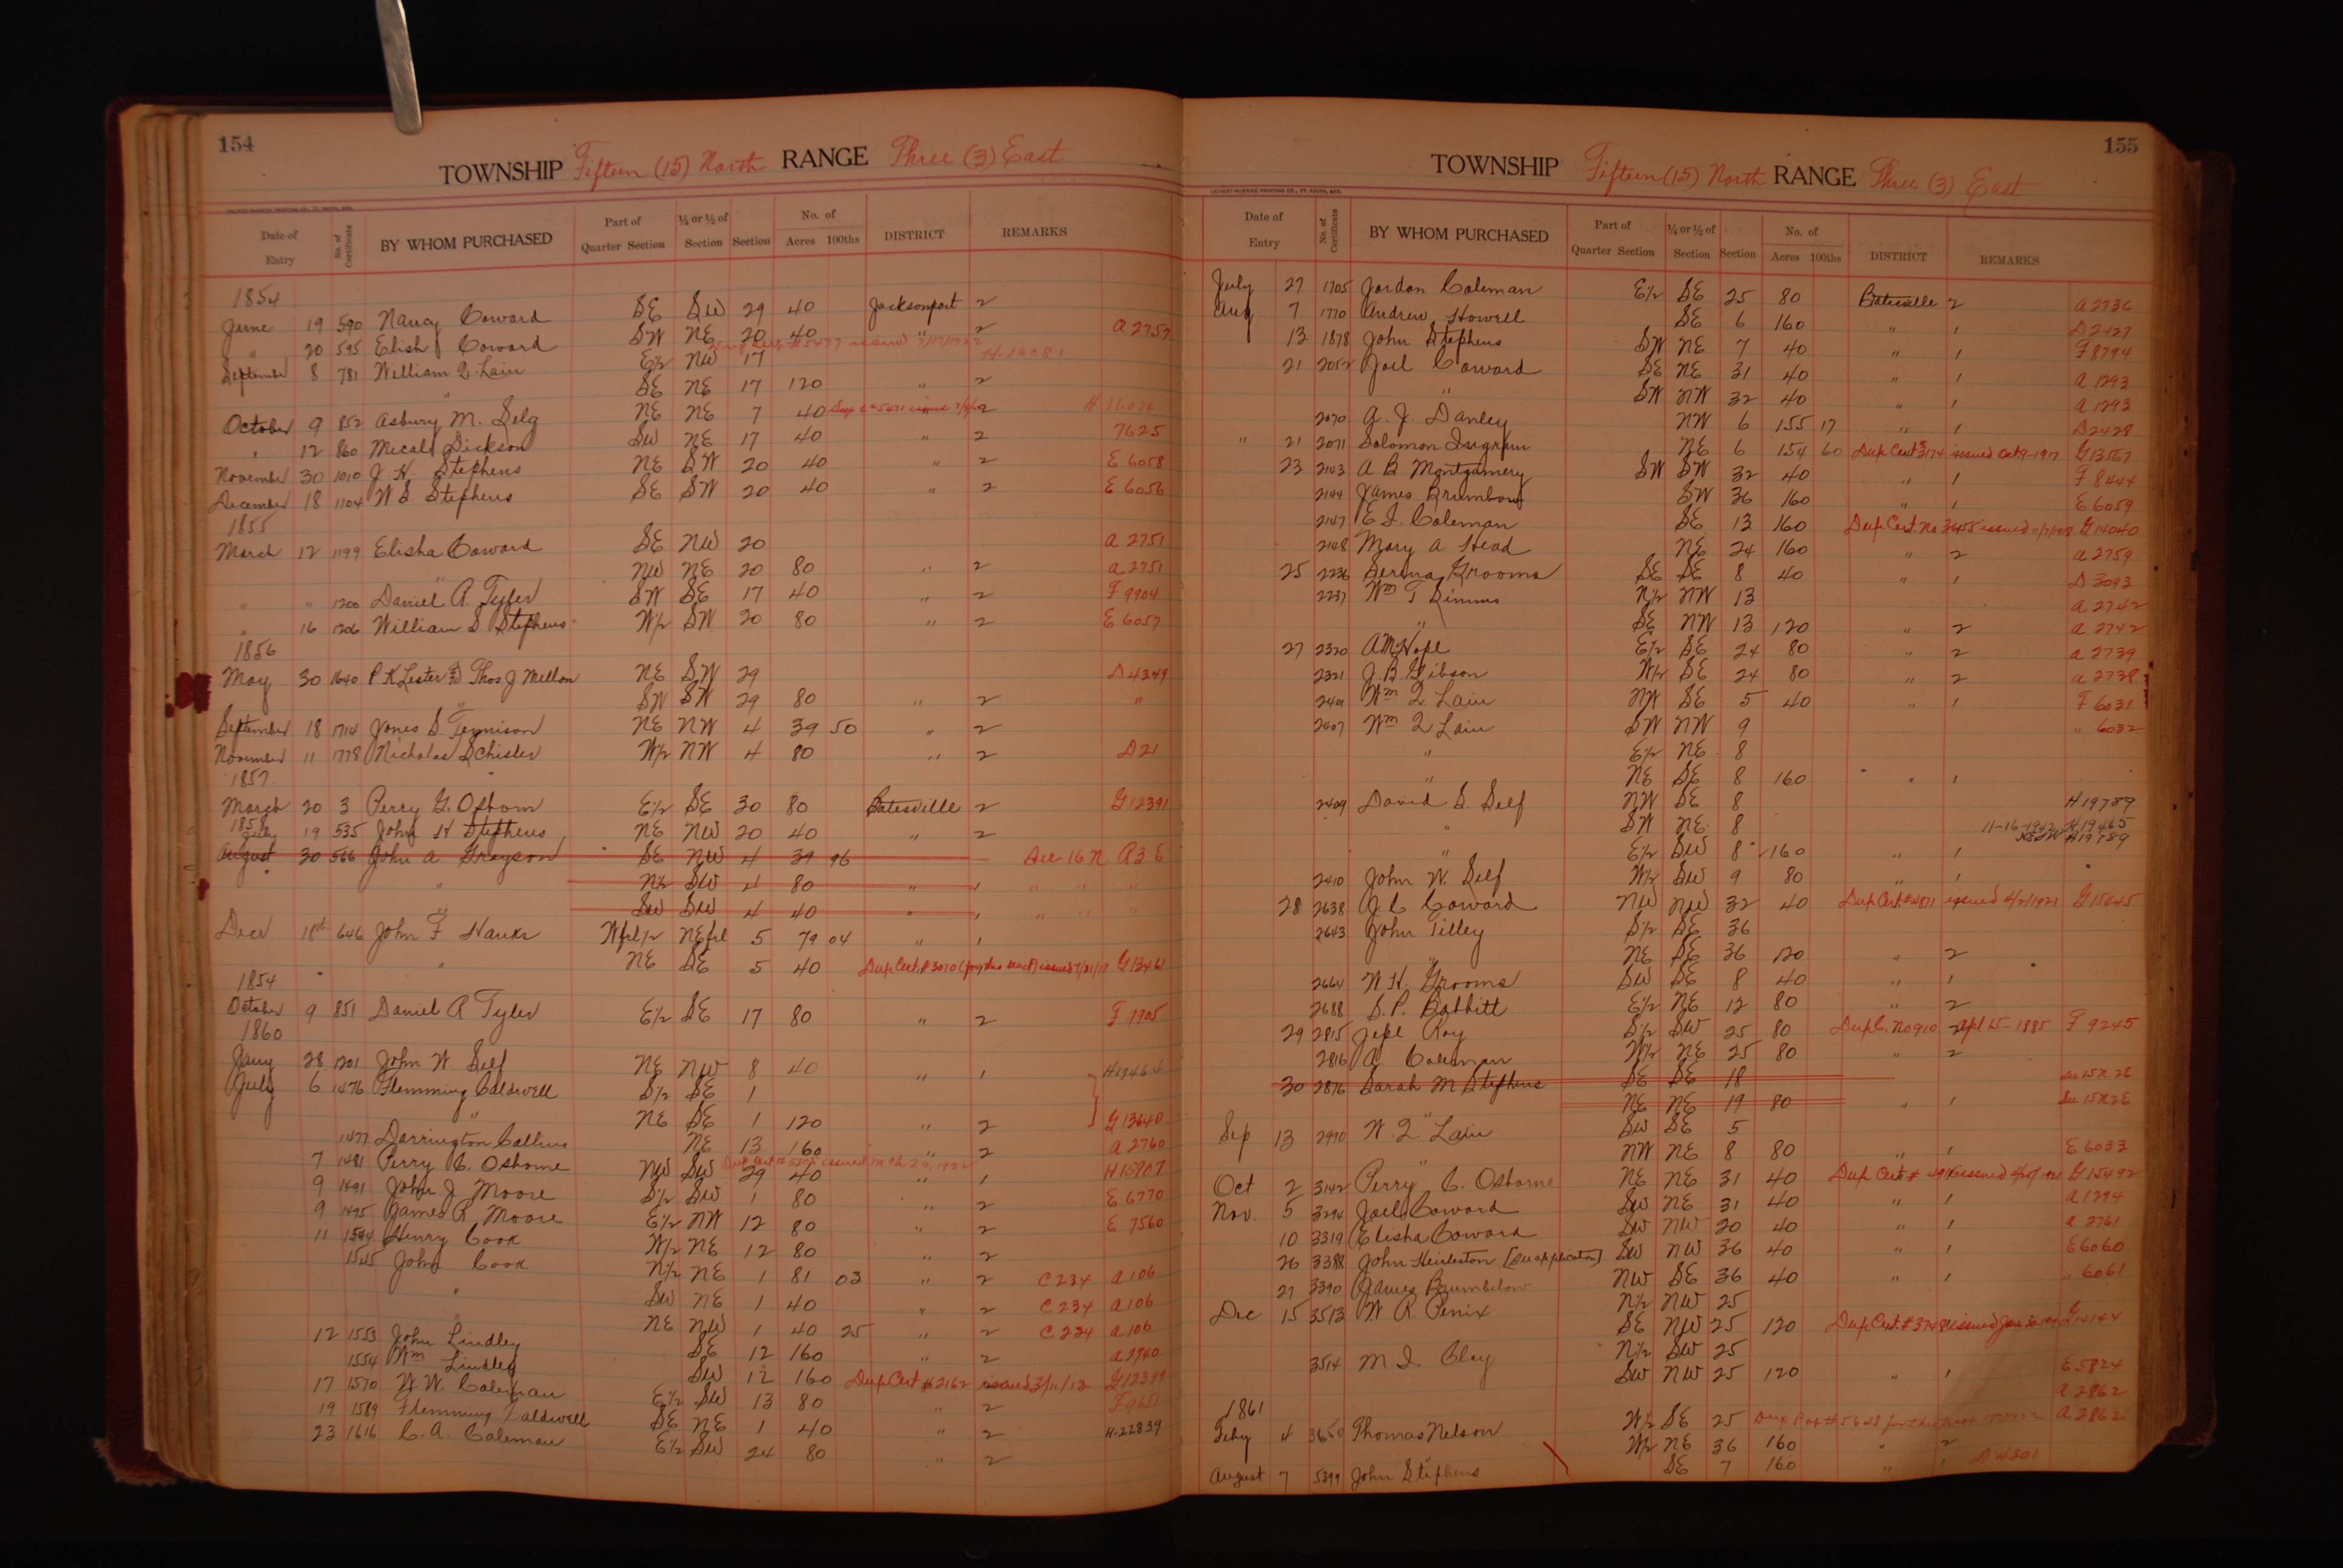 154
TOWNSHIP Fifteen (15) North RANGE Three (3) East
CALVERT-McBRIDE PRINTING CO., FT. SMITH, ARK.
Date of Entry No. of Certificate BY WHOM PURCHASED Part of Quarter Section ¼ or ½ of Section Section No. of Acres 100ths DISTRICT REMARKS
1854
June 19 590 Nancy Coward SE SW 29 40 Jacksonport 2
" 20 595 Elish Coward SW NE 20 40 " 2 A 2757
September 8 781 William Q Lain E½ NW 17 H 16081
" SE NE 17 120 " 2
October 9 852 Asbury M. Selg NE NE 7 40 2 H
" 12 860 Mecals Dickson SW NE 17 40 " 2 7625
November 30 1010 J. H. Stephens NE SW 20 40 " 2 E 6058
December 18 1104 W S Stephens SE SW 20 40 " 2 E 6056
1855
March 12 1199 Elisha Coward SE NW 20 A 2751
NW NE 20 80 " 2 A 2751
" " 1200 Daniel R. Tyler SW SE 17 40 " 2 F 9904
" 16 1206 William S Stephens W½ SW 20 80 " 2 E 6057
1856
May 30 1640 P K Lester & Thos J Mellon NE SW 29 D 4349
" SW SW 29 80 " 2 "
September 18 1714 Jones S Tennison NE NW 4 39 50 " 2
November 11 1778 Nicholas Schisler W½ NW 4 80 " 2 D 21
1857
March 20 3 Perry G. Osborn E½ SE 30 80 Batesville 2 G 12391
1858
July 19 535 John H Stephens NE NW 20 40 " 2
August 30 566 John A Grayson SE NW 4 39 96 See 16 N R3 E
" N½ SW 4 80 " 1 " " "
" SW SW 4 40 " 1 " " "
Decr 18th 646 John F Hanks W frl ½ NE frl 5 79 04 " 1
" NE SE 5 40 Dup Cert. # 3070 (for this tract) issued 7/21/17 G 13461
1854
October 9 851 Daniel R Tyler E½ SE 17 80 " 2 F 9905
1860
Jany 28 1201 John W Self NE NW 8 40 " 1 H 19464
July 6 1476 Flemming Caldwell S½ SE 1
" NE SE 1 120 " 2 G 13640
1477 Darrington Collins NE 13 160 " 2 A 2760
7 1481 Perry C. Osborne NW SW 29 40 " 1 H 15907
9 1491 John J Moore S½ SW 1 80 " 2 E 6770
9 1495 James R Moore E½ NW 12 80 " 2 E 7560
11 1544 Henry Cook W½ NE 12 80 " 2
1545 John Cook N½ NE 1 81 03 " 2 C 234 A 106
" SW NE 1 40 " 2 C 234 A 106
NE NW 1 40 25 " 2 C 234 A 106
12 1553 John Lindley SE 12 160 " 2 A 2740
1554 Wm Lindley SW 12 160 Dup Cert # 2162 issued 3/11/12 G 12399
17 1570 W. W. Coleman E½ SW 13 80 " 2 F 9651
19 1589 Flemming Caldwell SE NE 1 40 " 2
23 1616 C. A. Coleman E½ SW 24 80 " 2 H-22839
155
TOWNSHIP Fifteen (15) North RANGE Three (3) East
CALVERT-McBRIDE PRINTING CO., FT. SMITH, ARK.
Date of Entry No. of Certificate BY WHOM PURCHASED Part of Quarter Section ¼ or ½ of Section Section No. of Acres 100ths DISTRICT REMARKS
July 27 1705 Jordan Coleman E½ SE 25 80 Batesville 2 A 2736
Aug 7 1770 Andrew Howell SE 6 160 " 1 D 2427
13 1878 John Stephens SW NE 7 40 " 1 F 8794
21 2052 Joel Coward SE NE 31 40 " 1 A 1293
" SW NW 32 40 " 1 A 1293
2070 A. J. Danley NW 6 155 17 " 1 D 2428
" 21 2071 Solomon Ingram NE 6 154 60 Dup Cert 3174 issued Oct 9-1917 G 13567
23 2143 A B Montgamery SW SW 32 40 " 1 F 8444
2144 James Brumbow SW 36 160 " 1 E 6059
2147 E. I. Coleman SE 13 160 Dup Cert. No 3455 issued G 14040
2148 Mary A Head NE 24 160 " 2 A 2759
25 2236 Grooms SE SE 8 40 " 1 D 3093
2237 Wm T Simms N½ NW 13 A 2742
" SE NW 13 120 " 2 A 2742
27 2320 A M Hope E½ SE 24 80 " 2 A 2739
2321 J. B. Gibson W½ SE 24 80 " 2 A 2738
2401 Wm Q Lain NW SE 5 40 " 1 F 6031
2407 Wm Q Lain SW NW 9 " 6032
" E½ NE 8
" NE SE 8 160 " 1
2409 David S. Self NW SE 8 H 19789
" SW NE 8 11-16-1942 H 19465
" E½ SW 8 160 " 1 H 19789
2410 John W. Self W½ SW 9 80 " 1
28 2638 J. C. Coward NW NW 32 40 Dup Cert. # 4811 issued 4/2/1921 G 15645
2643 John Tilley S½ SE 36
" NE SE 36 120 " 2
2664 W. H. Grooms SW SE 8 40 " 1
2688 S. P. Babbitt E½ NE 12 80 " 2
29 2815 Jepe Ray S½ SW 25 80 Dup C. No 910 2 Apl 25-1885 F 9245
2816 A. Coleman W½ NE 25 80 " 2
30 2876 Sarah M Stephens SE SE 18 See 15 N 2E
" NE NE 19 80 " 1 See 15 N 2E
Sep 13 2990 W. Q Lain SW SE 5
" NW NE 8 80 " 1 E 6033
Oct 2 3142 Perry C. Osborne NE NE 31 40 Dup Cert # issued G 15492
Nov. 5 3294 Joel Coward SW NE 31 40 " 1 A 1294
10 3319 Elisha Coward SW NW 20 40 " 1 A 2761
26 3388 John [See application] SW NW 36 40 " 1 E 6060
27 3390 James Brumbelow NW SE 36 40 " 1 " 6061
Dec 15 3513 W. R. Penix N½ NW 25
" SE NW 25 120 Dup Cert. # issued Jan G 14144
3514 M. I. Clay N½ SW 25
SW NW 25 120 " 1 E 5824
1861 A 2862
Feby 4 Thomas Nelson W½ SE 25 A 2862
" W½ NE 36 160 " 2
August 7 5399 John Stephens SE 7 160 " 1 D 4801